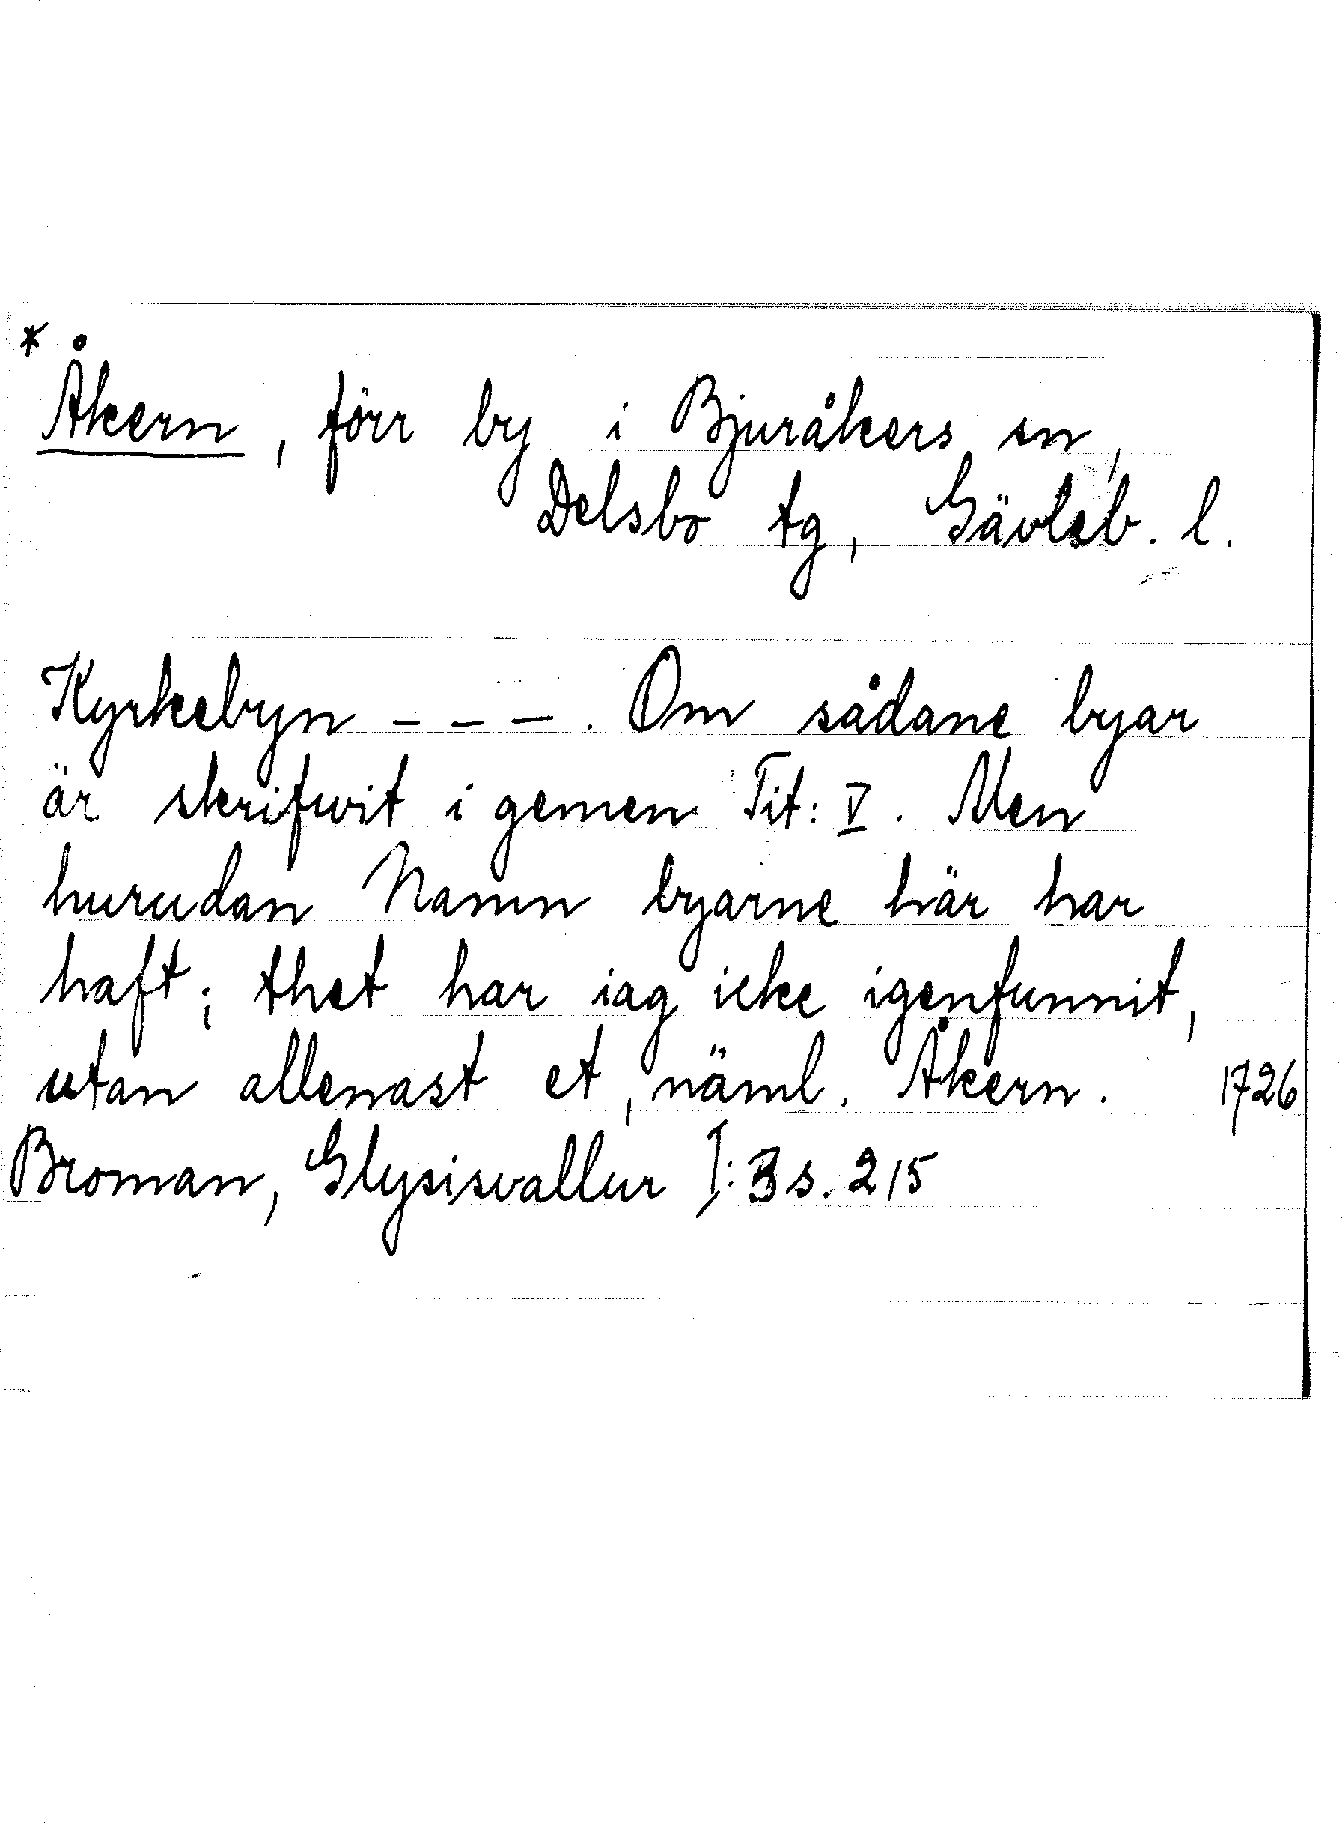 * Åkern, förr by i Bjuråkers sn,
Delsbo tg, Gävleb. l.
Kyrkebyn ---. Om sådane byar
är skrifwit i gemen Tit: V. Men
hurudan Namn byarne här har
haft; thet har iag icke igenfunnit,
utan allenast et, näml. Åkern. 1726
Broman, Glysisvallur I:3 s. 215